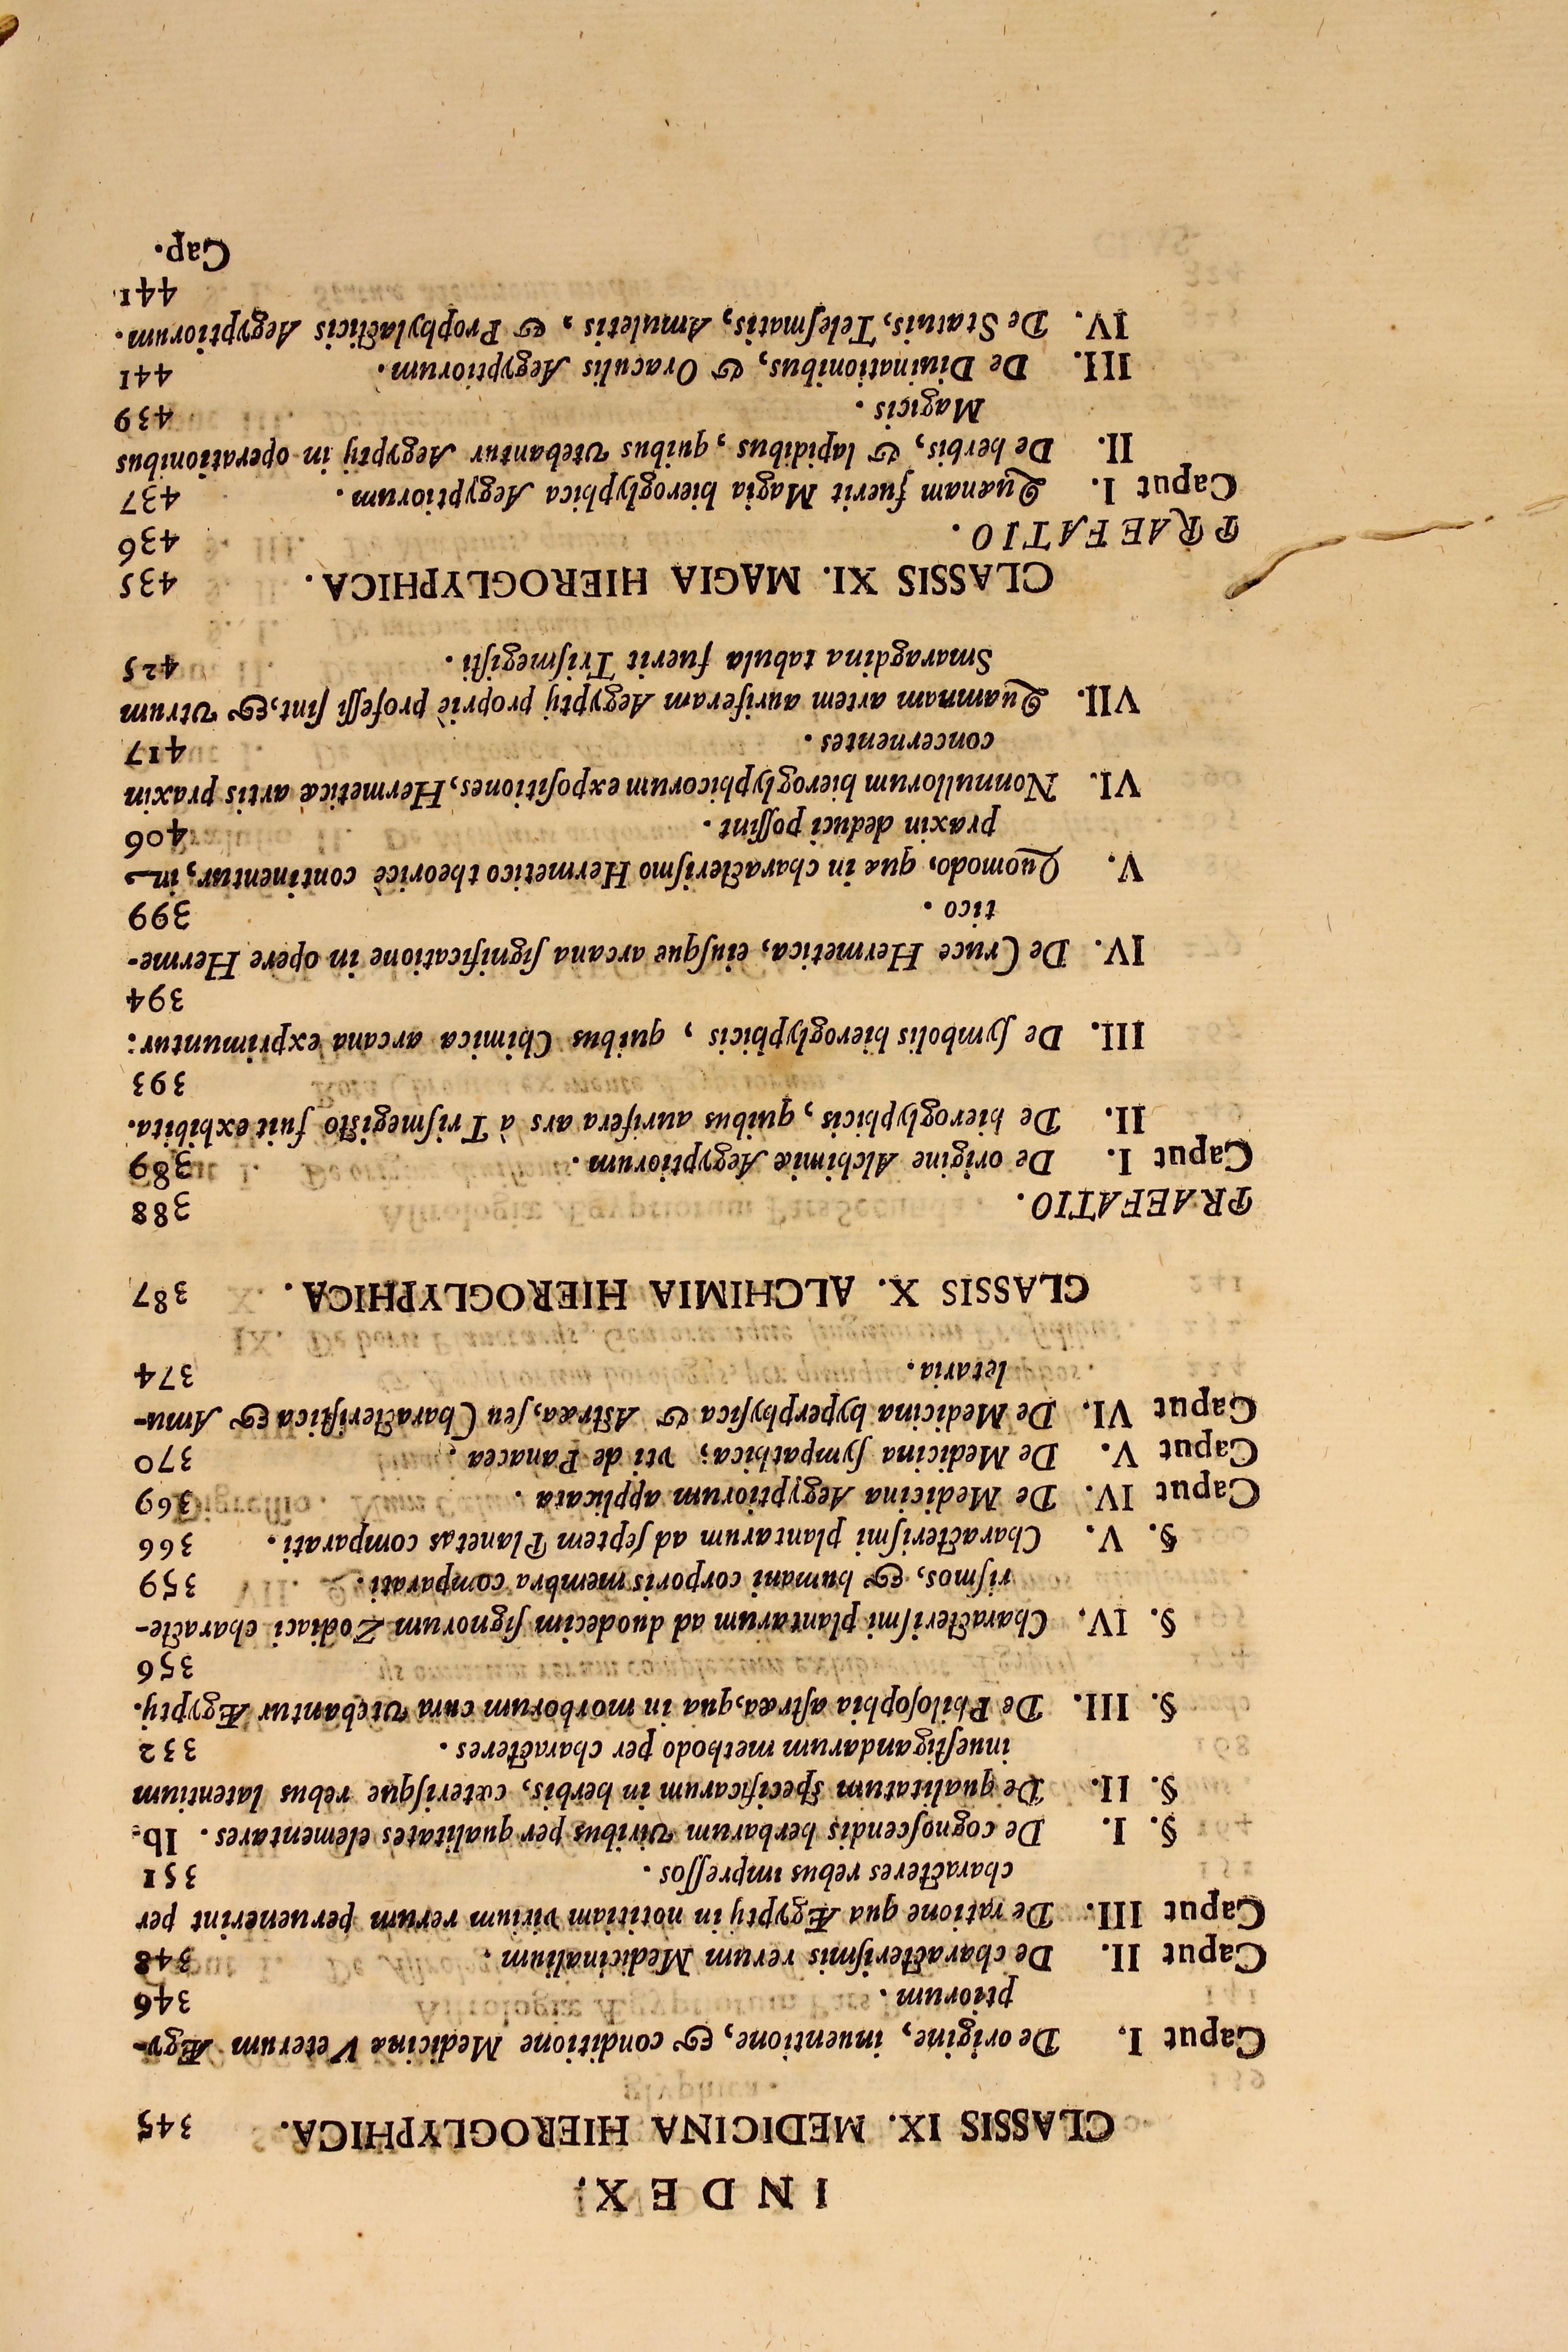 INDEX.
CLASSIS IX. MEDICINA HIEROGLYPHICA. 345
Caput I. De origine, inuentione, & conditione Medicinæ Veterum Ægy-
ptiorum. 346
Caput II. De characteriſmis rerum Medicinalium. 348
Caput III. De ratione qua Ægyptij in notitiam virium rerum peruenerint per
characteres rebus impreſſos. 351
§. I. De cognoſcendis herbarum viribus per qualitates elementares. Ib.
§. II. De qualitatum ſpecificarum in herbis, cæteriſque rebus latentium
inueſtigandarum methodo per characteres. 352
§. III. De Philoſophia aſtræa, qua in morborum cura vtebantur Ægyptij.
356
§. IV. Characteriſmi plantarum ad duodecim ſignorum Zodiaci characte-
riſmos, & humani corporis membra comparati. 359
§. V. Characteriſmi plantarum ad ſeptem Planetas comparati. 366
Caput IV. De Medicina Aegyptiorum applicata. 369
Caput V. De Medicina ſympathica; vti de Panacea. 370
Caput VI. De Medicina hyperphyſica & Aſtræa, ſeu Characteriſtica & Amu-
letaria. 374
CLASSIS X. ALCHIMIA HIEROGLYPHICA. 387
PRAEFATIO. 388
Caput I. De origine Alchimiæ Aegyptiorum. 389
II. De hieroglyphicis, quibus aurifera ars à Triſmegiſto fuit exhibita.
393
III. De ſymbolis hieroglyphicis, quibus Chimica arcana exprimuntur:
394
IV. De Cruce Hermetica, eiuſque arcana ſignificatione in opere Herme-
tico. 399
V. Quomodo, quæ in characteriſmo Hermetico theoricè continentur, in
praxin deduci poſſint. 406
VI. Nonnullorum hieroglyphicorum expoſitiones, Hermeticæ artis praxin
concernentes. 417
VII. Quamnam artem auriferam Aegyptij propriè profeſſi ſint, & vtrum
Smaragdina tabula fuerit Triſmegiſti. 425
CLASSIS XI. MAGIA HIEROGLYPHICA. 435
PRAEFATIO. 436
Caput I. Quænam fuerit Magia hieroglyphica Aegyptiorum. 437
II. De herbis, & lapidibus, quibus vtebantur Aegyptij in operationibus
Magicis. 439
III. De Diuinationibus, & Oraculis Aegyptiorum. 441
IV. De Statuis, Teleſmatis, Amuletis, & Prophylacticis Aegyptiorum.
441
Cap.